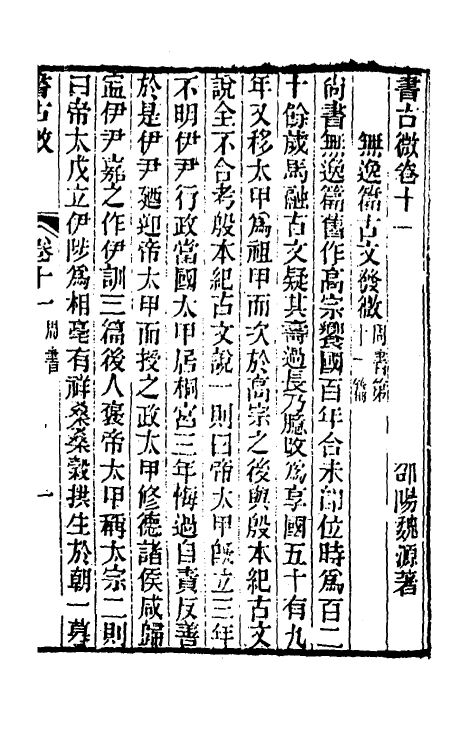 書古微卷十一
邵陽魏源著
無逸篇古文發微周書第十一篇
尚書無逸篇舊作高宗饗國百年合未卽位時爲百二
十餘歲馬融古文疑其壽過長乃臆改爲享國五十有九
年又移太甲爲祖甲而次於高宗之後與殷本紀古文
說全不合考殷本紀古文說一則曰帝太甲旣立三年
不明伊尹行政當國太甲居桐宮三年悔過自責反善
於是伊尹廼迎帝太甲而授之政太甲修德諸侯咸歸
伊尹嘉之作伊訓三篇後人褒帝太甲稱太宗二則
曰帝太戊立伊陟爲相亳有祥桑榖拱生於朝一暮
書古微
卷十一 周書
一